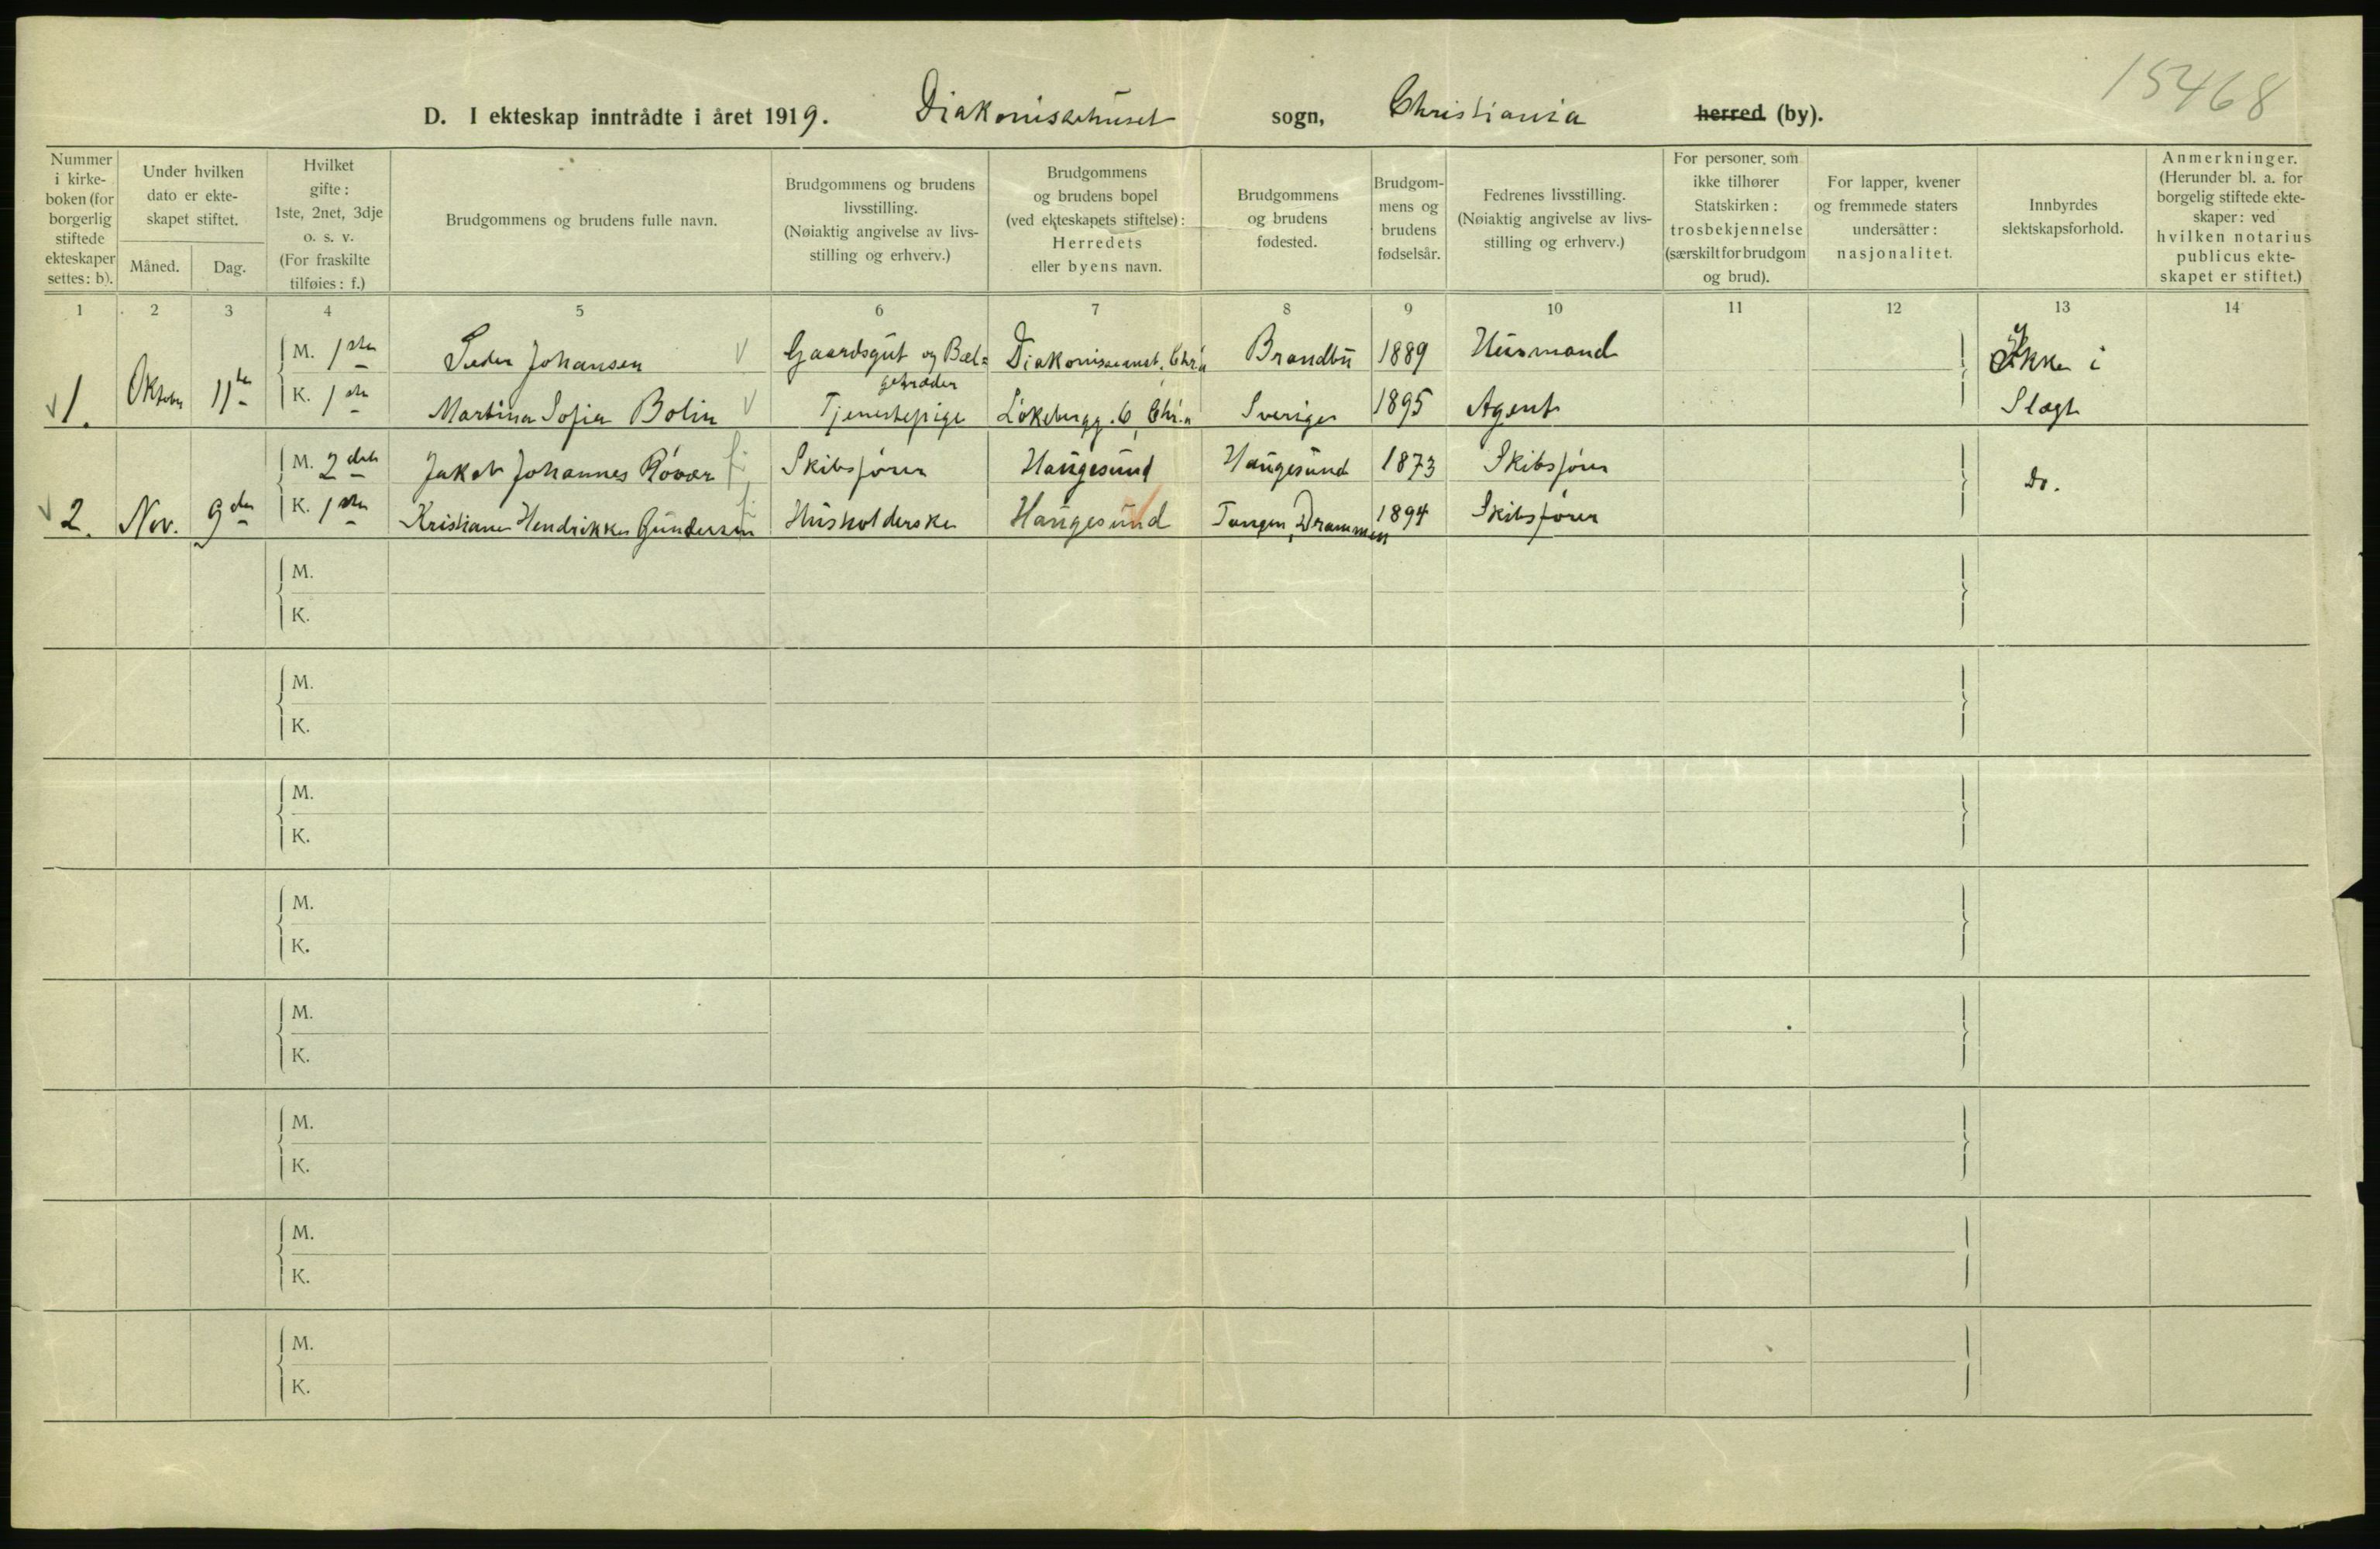 15468
D. I ekteskap inntrådte i året 1919. Diakonissehuset sogn, Christiania herred (by).
Nummer i kirke-boken (for borgerlig stiftede ekteskaper settes: b).
Under hvilken dato er ekte-skapet stiftet.
Måned. Dag.
Hvilket gifte: 1ste, 2net, 3dje o. s. v. (For fraskilte tilføies: f.)
Brudgommens og brudens fulle navn.
Brudgommens og brudens livsstilling. (Nøiaktig angivelse av livs-stilling og erhverv.)
Brudgommens og brudens bopel (ved ekteskapets stiftelse): Herredets eller byens navn.
Brudgommens og brudens fødested.
Brudgom-mens og brudens fødselsår.
Fedrenes livsstilling. (Nøiaktig angivelse av livs-stilling og erhverv.)
For personer, som ikke tilhører Statskirken: trosbekjennelse (særskilt for brudgom og brud).
For lapper, kvener og fremmede staters undersåtter: nasjonalitet.
Innbyrdes slektskapsforhold.
Anmerkninger. (Herunder bl. a. for borgelig stiftede ekte-skaper: ved hvilken notarius publicus ekte-skapet er stiftet.)
1 2 3 4 5 6 7 8 9 10 11 12 13 14
M. 1ste Peder Johansen Gaardsgut og Bæl= Diakonisseanst. Chr.a Brandbu 1889 Husmand Ikke i
getræder
1. Oktober 11te K. 1ste Martina Sofia Bolin Tjenestepige Løkebergg. 6, Chr.a Sverige 1895 Agent Slægt
M. 2det Jakob Johannes Røvær Skibsfører Haugesund Haugesund 1873 Skibsfører do.
2. Nov. 9de K. 1ste Kristiane Hendrikke Gundersen Husholderske Haugesund Tangen, Drammen 1894 Skibsfører
M.
K.
M.
K.
M.
K.
M.
K.
M.
K.
M.
K.
M.
K.
M.
K.